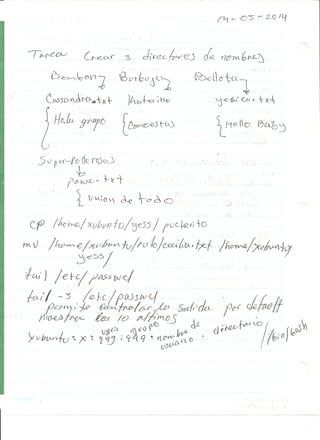 14-05-2014
Tarea Crear 3 directores de nombres
Bombon Burbuja Bellota
Cassandra.txt Katerine yesica.txt
{ Hola grupo { Comoestas { Hello Baby
Super-Poderosas
power.txt
{ union de todo
cp /home/xubuntu/yess/ puckerito
mv /home/xubuntu/rulo/cecilia.txt /home/xubuntu/
yess/
tail /etc/passwd
tail -5 /etc/passwd
permite controlar la salida por default
muestra las 10 ultimos
uses grupo de directorio
xubuntu: x: 999: 999: nombre usuario: /bin/bash